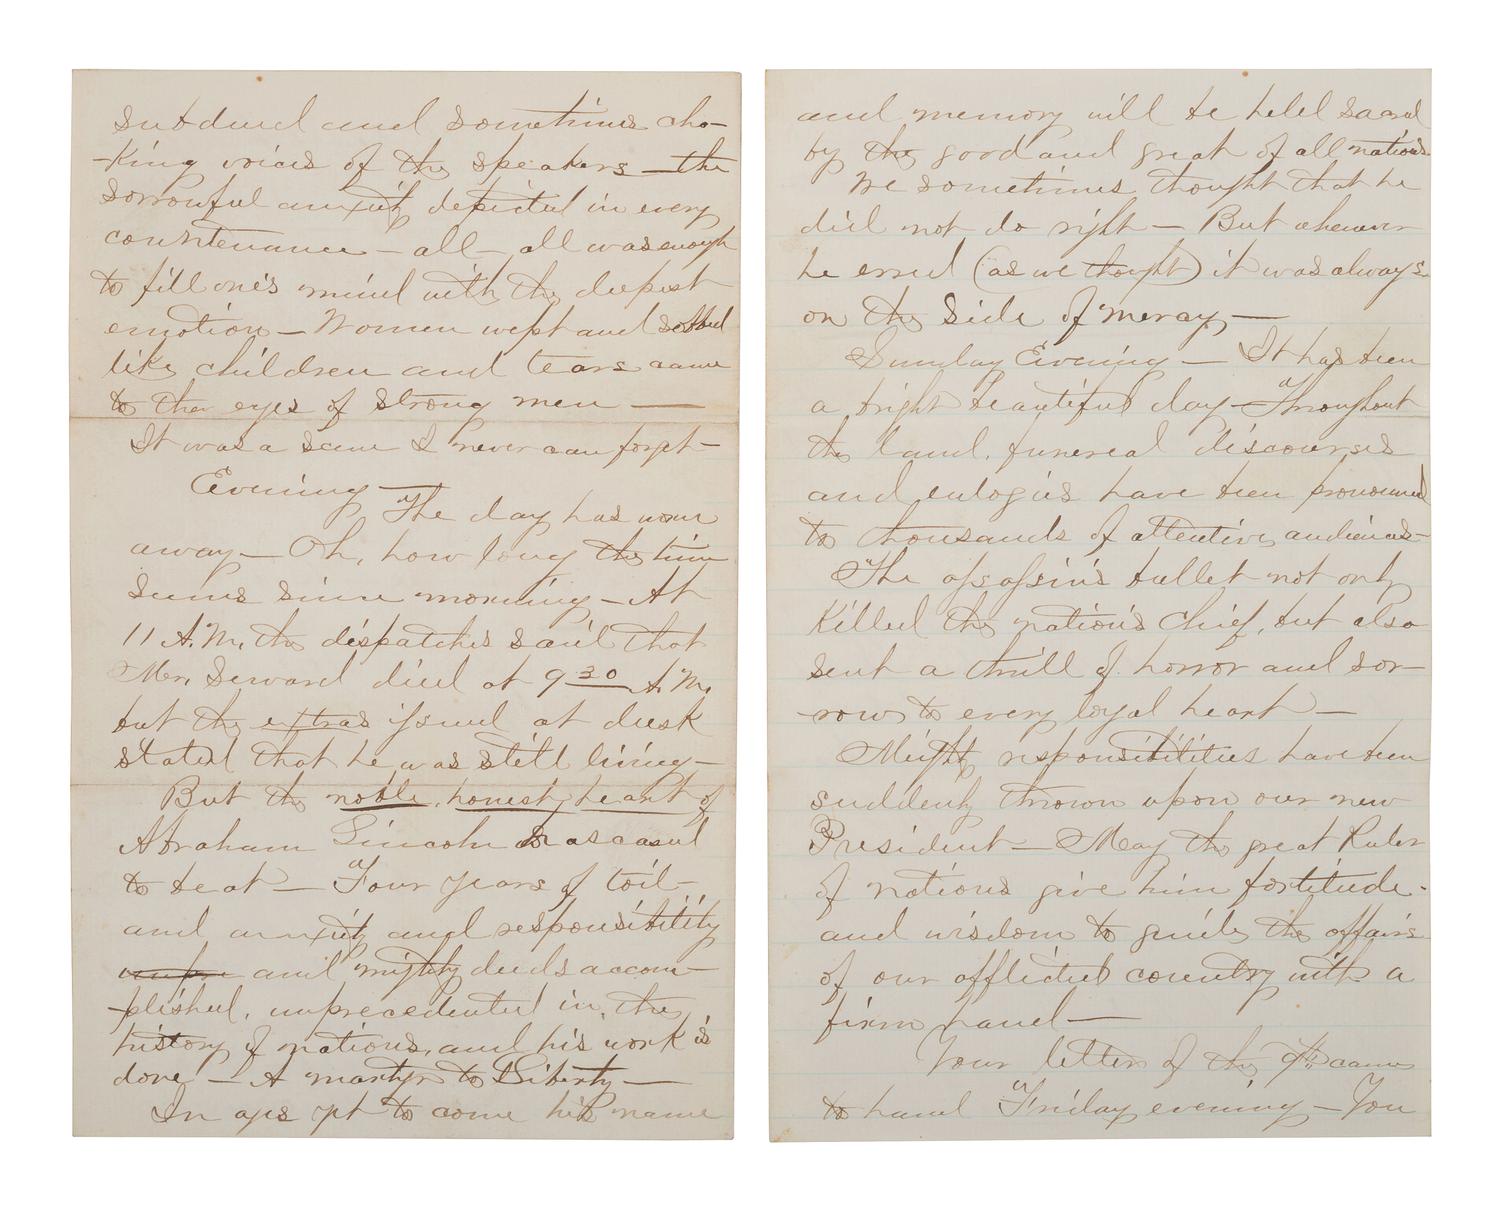 subdued and sometimes cho-
-king voices of the speakers — the
sorrowful anxiety depicted in every
countenance — all — all was enough
to fill one's mind with the deepest
emotion — Women wept and sobbed
like children and tears came
to the eyes of strong men —
It was a scene I never can forget —
Evening —
The day has worn
away — Oh, how long the time
seems since morning — At
11 A.M. the dispatches said that
Mr. Seward died at 9 30 A.M.
but the extras issued at dusk
stated that he was still living —
But the noble, honest, heart of
Abraham Lincoln has ceased
to beat — Four years of toil —
and anxiety and responsibility
unpre and mighty deeds accom-
-plished, unprecedented in the
history of nations, and his work is
done — A martyr to Liberty —
In ages yet to come his name
and memory will be held sacred
by the good and great of all nations
We sometimes thought that he
did not do right — But whenever
he erred (as we thought) it was always
on the side of mercy, —
Sunday Evening — It has been
a bright beautiful day — Throughout
the land, funereal discourses
and eulogies have been pronounced
to thousands of attentive audiences —
The assassin's bullet not only
Killed the nation's Chief, but also
sent a thrill of horror and sor-
-row to every loyal heart —
Mighty responsibilities have been
suddenly thrown upon our new
President — May the great Ruler
of nations give him fortitude -
and wisdom to guide the affairs
of our afflicted country with a
firm hand —
Your letter of the 9th came
to hand Friday evening — You